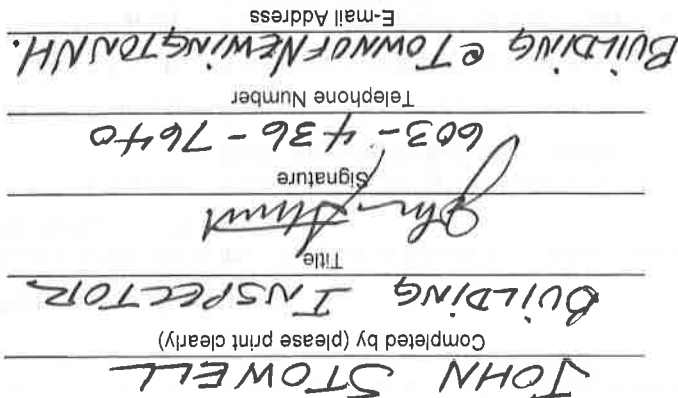 JOHN STOWELL
Completed by (please print clearly)
BUILDING INSPECTOR
Title
John Stowell
Signature
603-436-7640
Telephone Number
BUILDING @ TOWNOFNEWINGTONNH.
E-mail Address